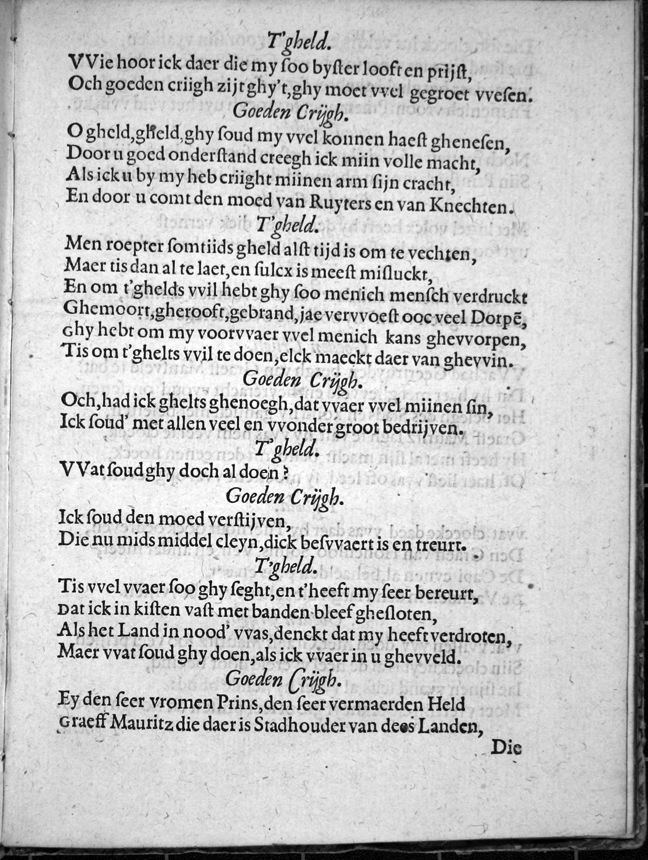 T'gheld.
VVie hoor ick daer die my ſoo byſter looft en prijſt,
Och goeden criigh zijt ghy't, ghy moet vvel gegroet vveſen.
Goeden Crijgh.
O gheld, gheld, ghy ſoud my vvel konnen haeſt gheneſen,
Door u goed onderſtand creegh ick miin volle macht,
Als ick u by my heb criight miinen arm ſijn cracht,
En door u comt den moed van Ruyters en van Knechten.
T'gheld.
Men roepter ſomtiids gheld alſt tijd is om te vechten,
Maer tis dan al te laet, en ſulcx is meeſt miſluckt,
En om t'ghelds vvil hebt ghy ſoo menich menſch verdruckt
Ghemoort, gherooft, gebrand, jae vervvoeſt ooc veel Dorpē,
Ghy hebt om my voorvvaer vvel menich kans ghevvorpen,
Tis om t'ghelts vvil te doen, elck maeckt daer van ghevvin.
Goeden Crijgh.
Och, had ick ghelts ghenoegh, dat vvaer vvel miinen ſin,
Ick ſoud' met allen veel en vvonder groot bedrijven.
T'gheld.
VVat ſoud ghy doch al doen?
Goeden Crijgh.
Ick ſoud den moed verſtijven,
Die nu mids middel cleyn, dick beſvvaert is en treurt.
T'gheld.
Tis vvel vvaer ſoo ghy ſeght, en t'heeft my ſeer bereurt,
Dat ick in kiſten vaſt met banden bleef gheſloten,
Als het Land in nood' vvas, denckt dat my heeft verdroten,
Maer vvat ſoud ghy doen, als ick vvaer in u ghevveld.
Goeden Crijgh.
Ey den ſeer vromen Prins, den ſeer vermaerden Held
Graeff Mauritz die daer is Stadhouder van deeſ Landen,
Die